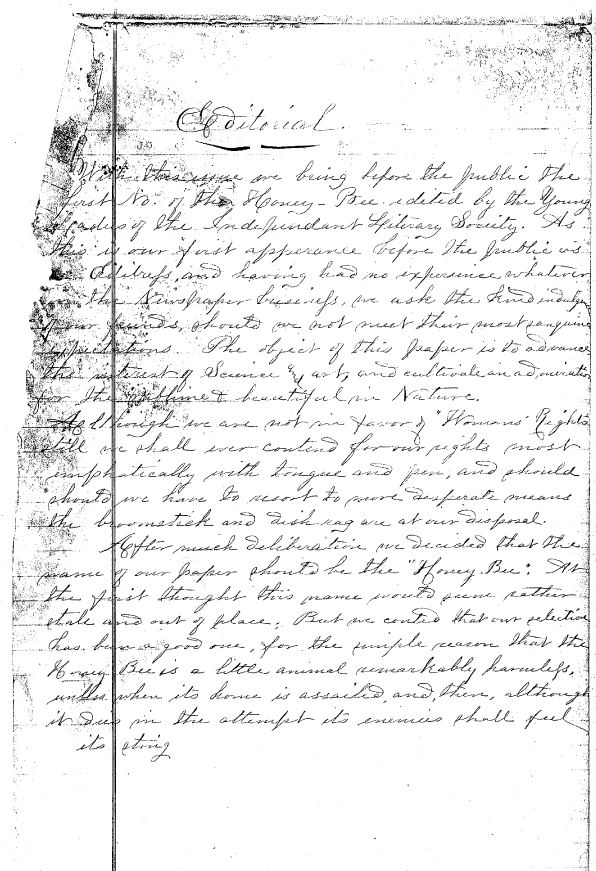 Editorial.
With this issue we bring before the public the
first No. of the Honey-Bee edited by the Young
Ladies of the Independant Literary Society. As
this is our first apperance before the public as
Editress, and having had no experience whatever
in the Newspaper business, we ask the kind indulg
of our friends, should we not meet their most sanguine
expectations. The object of this paper is to advance
the interest of Science & art, and cultivate an admiration
for the sublime & beautiful in Nature.
Although we are not in favor of "Womans' Rights
still we shall ever contend for our rights most
emphatically with tongue and pen, and should
should we have to resort to more desperate means
the broomstick and dish rag are at our disposal.
After much deliberation we decided that the
name of our paper should be the "Honey Bee". At
the first thought this name would seem rather
stale and out of place. But we conted that our selection
has been a good one, for the simple reason that the
Honey Bee is a little animal remarkably harmless,
unless when its home is assailed, and, then, although
it dies in the attempt its enemies shall feel
its sting